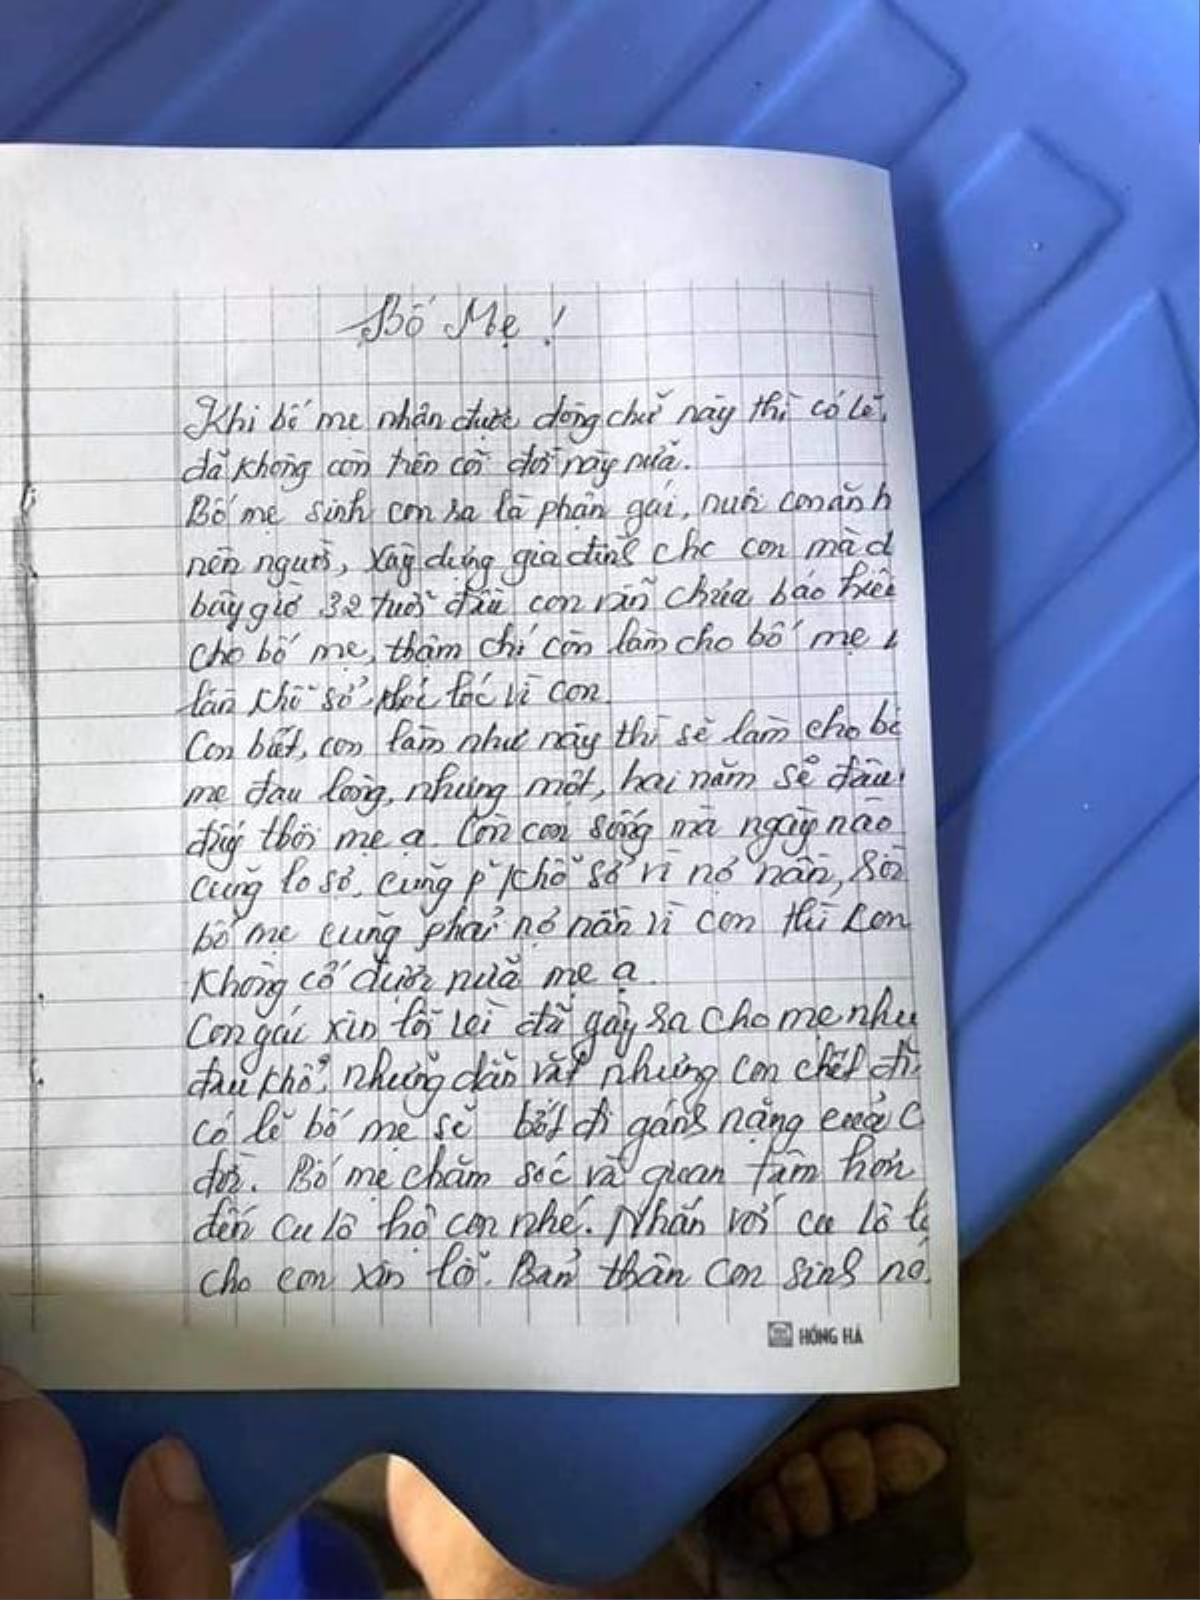 Bố Mẹ !
Khi bố mẹ nhận được dòng chữ này thì có lẽ
đã không còn trên cõi đời này nữa.
Bố mẹ sinh con ra là phận gái, nuôi con ăn h
nên người, xây dựng gia đình cho con mà đ
bây giờ 32 tuổi đầu con vẫn chưa báo hiếu
cho bố mẹ, thậm chí còn làm cho bố mẹ
khổ sở, vì con.
Con biết, con làm như này thì sẽ làm cho bố
mẹ đau lòng, nhưng một, hai năm sẽ đâu
đấy thôi mẹ ạ. Còn con sống mà ngày nào
cũng lo sợ, cũng p' khổ sở vì nợ nần,
bố mẹ cũng phải nợ nần vì con thì con
không cố được nữa mẹ ạ.
Con gái xin lỗi vì đã gây ra cho mẹ
đau khổ, những dằn vặt nhưng con chết đi
có lẽ bố mẹ sẽ bớt đi gánh nặng cuộc
đời. Bố mẹ chăm sóc và quan tâm hơn
đến cu lô hộ con nhé. Nhắn với cu lô là
cho con xin lỗi. Bản thân con sinh nó
HỒNG HÀ